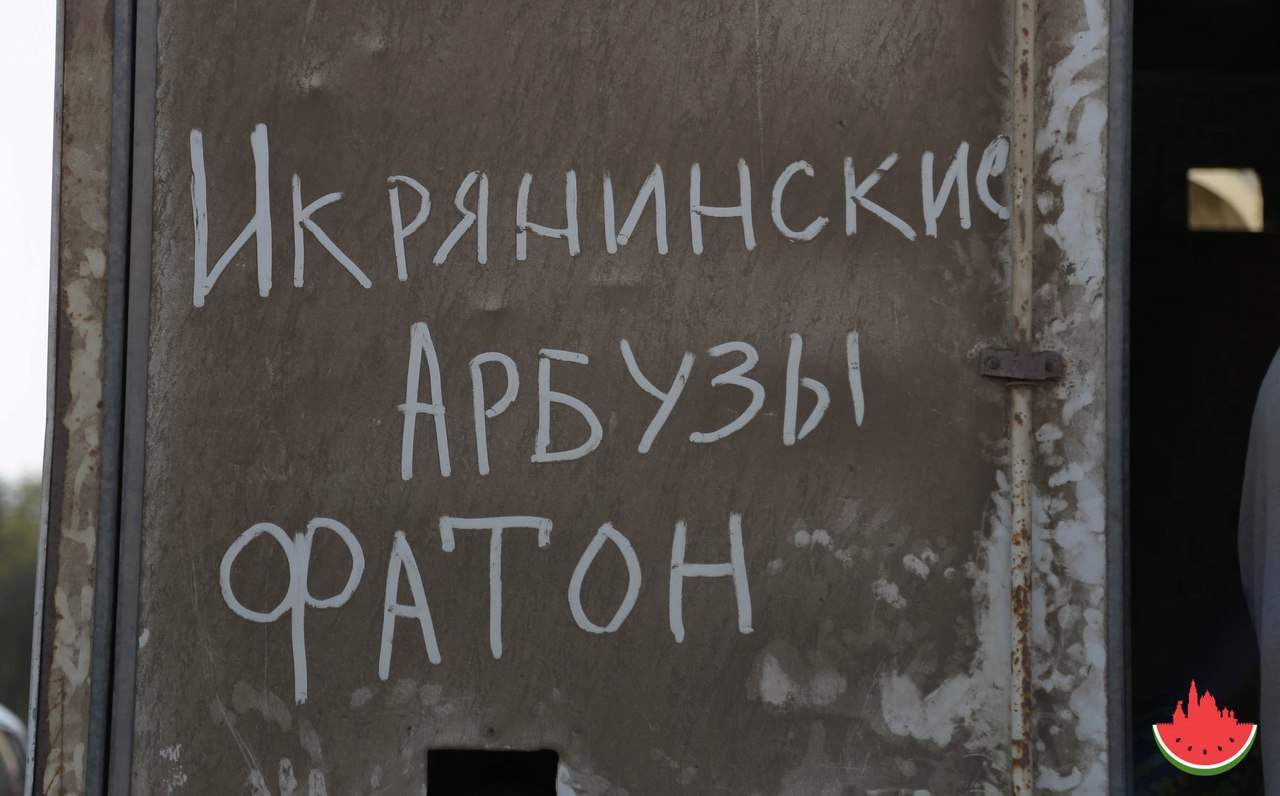 Икрянинские
Арбузы
Фатон